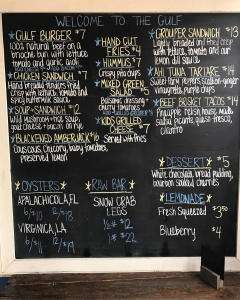 WELCOME TO THE GULF
GULF BURGER $7
100% natural beef on a
brioche bun with lettuce
tomato and garlic
CHICKEN SANDWICH $7
Hand breaded tenders fried
crisp with lettuce, tomato and
spicy buttermilk sauce
SOUP + SANDWICH $12
Wild mushroom soup,
goat cheese + bacon on rye
BLACKENED AMBERJACK $16
Couscous, Chicory, baby tomatoes,
preserved lemon
HAND CUT
FRIES $4
HUMMUS $7
Crispy pita chips
MIXED GREEN
SALAD $5
Balsamic dressing
cherry tomatoes
KIDS GRILLED
CHEESE $7
Served with fries
GROUPER SANDWICH $13
Lightly breaded and fried crisp
with lettuce, tomato and
lemon dill sauce
AHI TUNA TARTARE $14
Sweet + spicy peppers, scallion-ginger
vinaigrette, crispy chips
BEEF BRISKET TACOS $14
Pineapple relish, house made
salsa picante, queso fresco,
cilantro
DESSERT $5
White chocolate bread pudding,
bourbon soaked cherries
OYSTERS
APALACHICOLA, FL
6/$10 12/$18
VIRGINICA, LA
6/$11 12/$19
RAW BAR
SNOW CRAB
LEGS
1/2# $12
1# $22
LEMONADE
Fresh Squeezed
$3.50
Blueberry $4